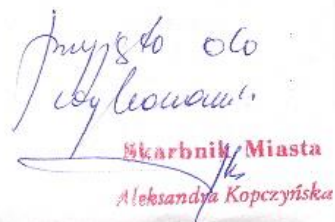 przyjęto do
wykonania.
Skarbnik Miasta
Aleksandra Kopczyńska